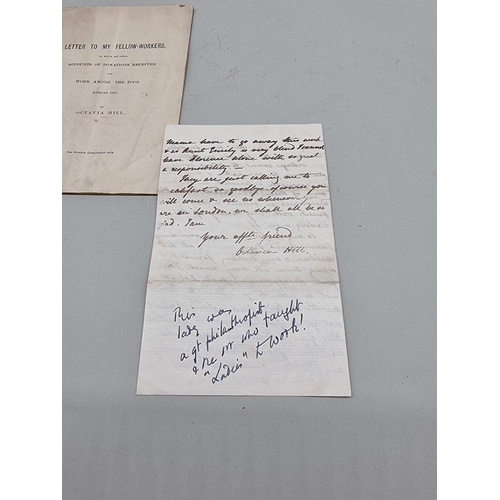 LETTER TO MY FELLOW-WORKERS,
TO WHICH ARE ADDED
ACCOUNTS OF DONATIONS RECEIVED
FOR
WORK AMONG THE POOR
DURING
BY
OCTAVIA HILL.
FOR PRIVATE CIRCULATION ONLY.
Mama have to go away this week
& as Aunt Emily is very blind I cannot
leave Florence alone with so great
a responsibility.
They are just calling me to
breakfast so goodbye of course you
will come & see us whenever you
are in London, we shall all be so
glad. I am
Your affte friend
Octavia Hill.
This was
lady was
a gt philanthropist
& the 1st who taught
"Ladies" to work!